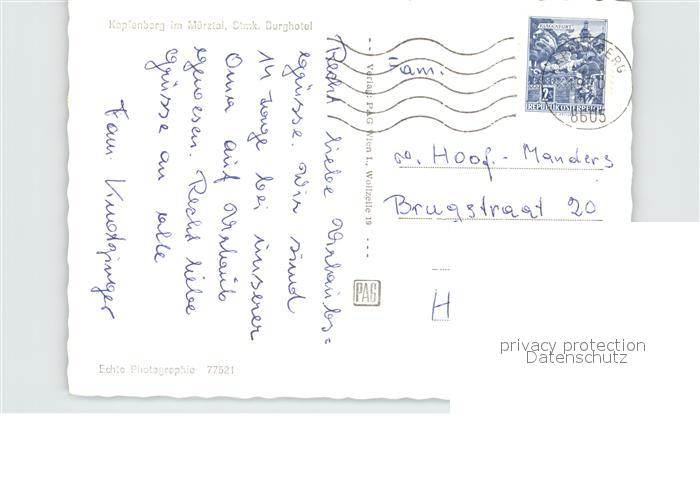 Kapfenberg im Mürztal, Stmk. Burghotel
Recht liebe Urlaubs=
grüsse. Wir sind
14 Tage bei unserer
Oma auf Urlaub
gewesen. Recht liebe
Grüsse an alle
Fam.
Echte Photographie 77521
Verlag: PAG Wien I., Wollzeile 19
PAG
KLAGENFURT
2S
REPUBLIK ÖSTERREICH
8605
Fam.
v. Hoof. - Manders
Brugstraat 20
H
privacy protection
Datenschutz